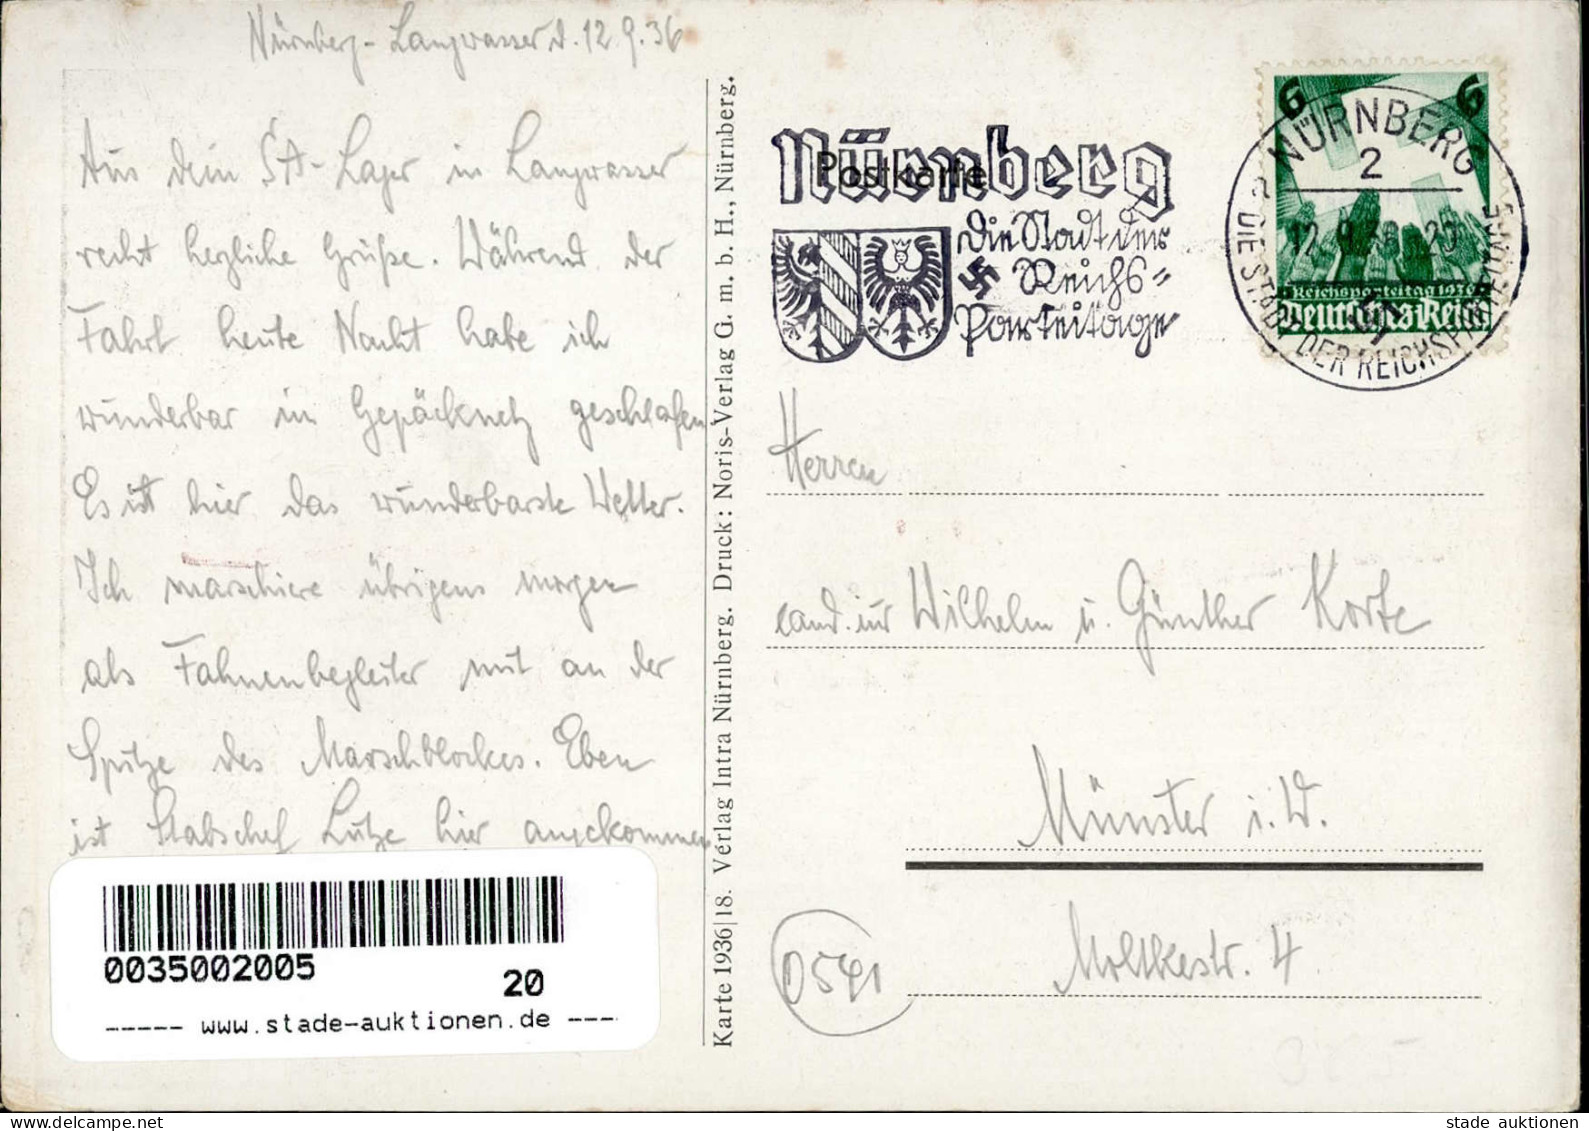 Nürnberg-Langwasser d. 12.9.36
Aus dem SA-Lager in Langwasser
recht herzliche Grüße. Während der
Fahrt heute Nacht habe ich
wunderbar im Gepäcknetz geschlafen
Es ist hier das wunderbarste Wetter.
Ich marschiere übrigens morgen
als Fahnenbegleiter mit an der
Spitze des Marschblockes. Eben
ist Stabschef Lutze hier angekommen
0035002005
20
----- www.stade-auktionen.de ---
Karte 1936|18. Verlag Intra Nürnberg. Druck: Noris-Verlag G. m. b. H., Nürnberg.
Postkarte
Nürnberg
Die Stadt der
Reichs-
Parteitage
6 6
Reichsparteitag 1936
Deutsches Reich
NÜRNBERG
2
12.9.36. 20
DIE STADT DER REICHSPARTEITAGE
Herren
cand. iur Wilhelm u. Günther Korte
Münster i. W.
Moltkestr. 4
0541
stade auktionen